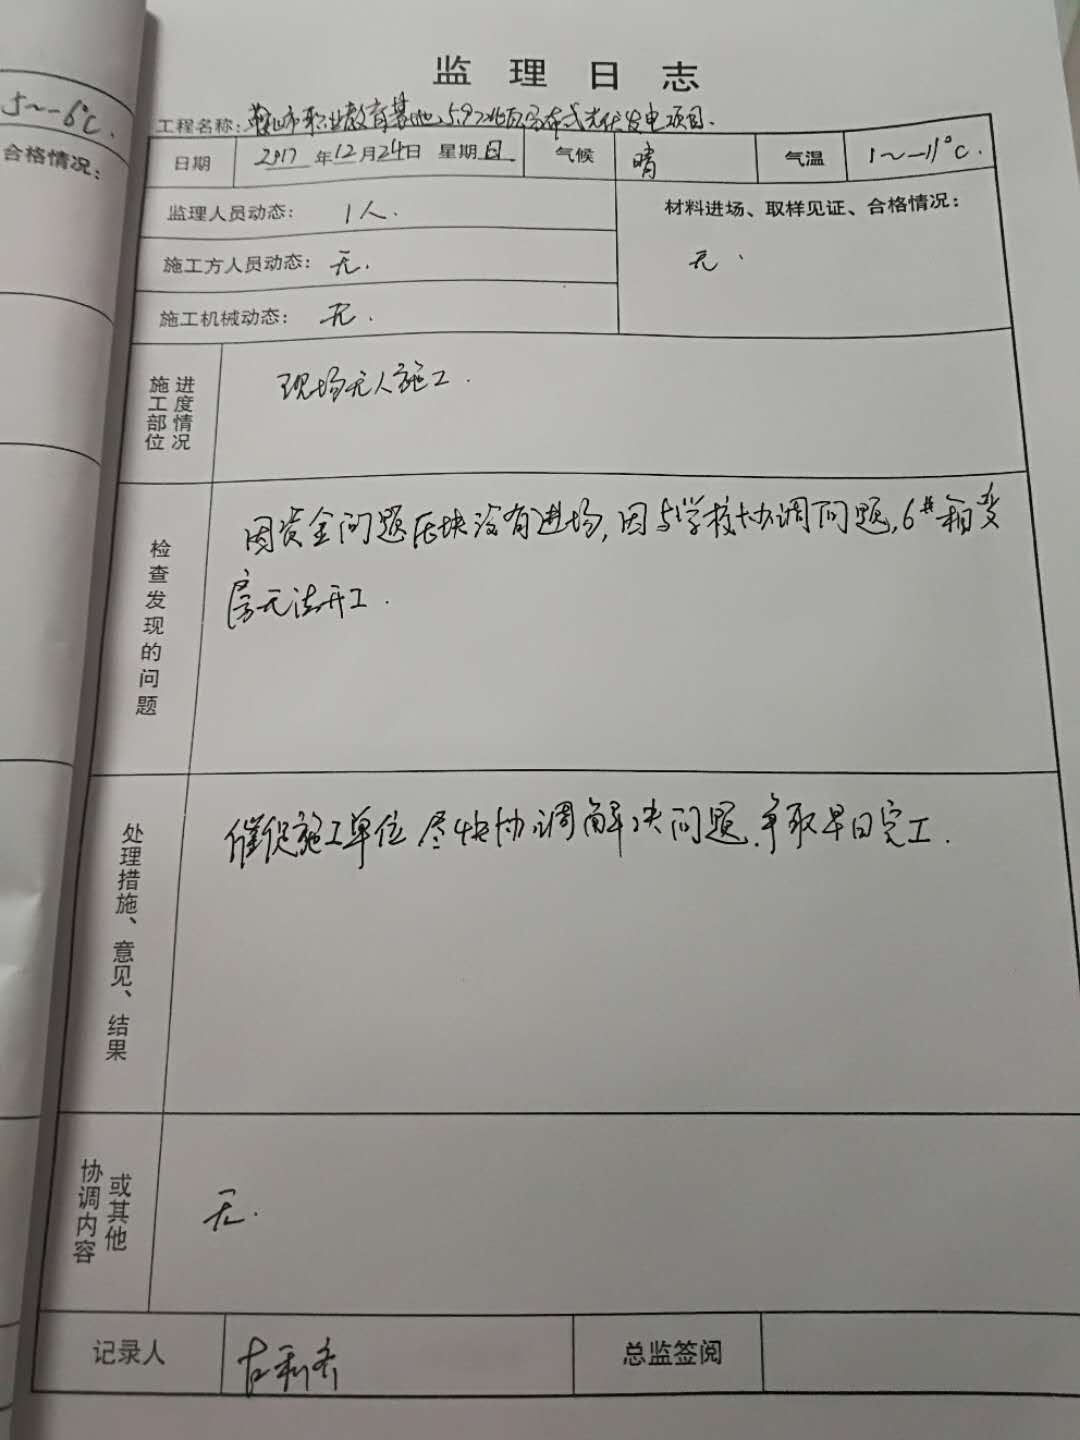 5~-6℃.
合格情况:
监理日志
工程名称: 市职业教育基地5.9兆瓦分布式光伏发电项目.
日期 2017年12月24日 星期日 气候 晴 气温 1~-11℃.
监理人员动态: 1人. 材料进场、取样见证、合格情况:
施工方人员动态: 无. 无.
施工机械动态: 无.
施工部位进度情况 现场无人施工.
检查发现的问题 因资金问题压块没有进场,因与学校协调问题,6#箱变
房无法开工.
处理措施、意见、结果 催促施工单位尽快协调解决问题.争取早日完工.
协调内容或其他 无.
记录人 总监签阅